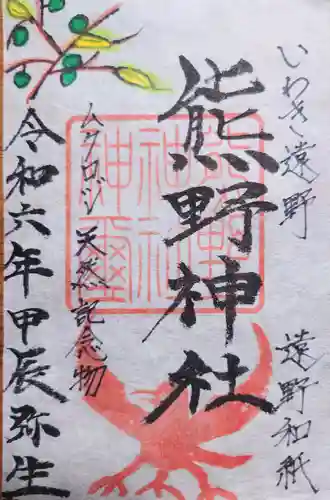 いわき遠野
遠野和紙
熊野神社
ムクロジ 天然記念物
令和六年甲辰弥生